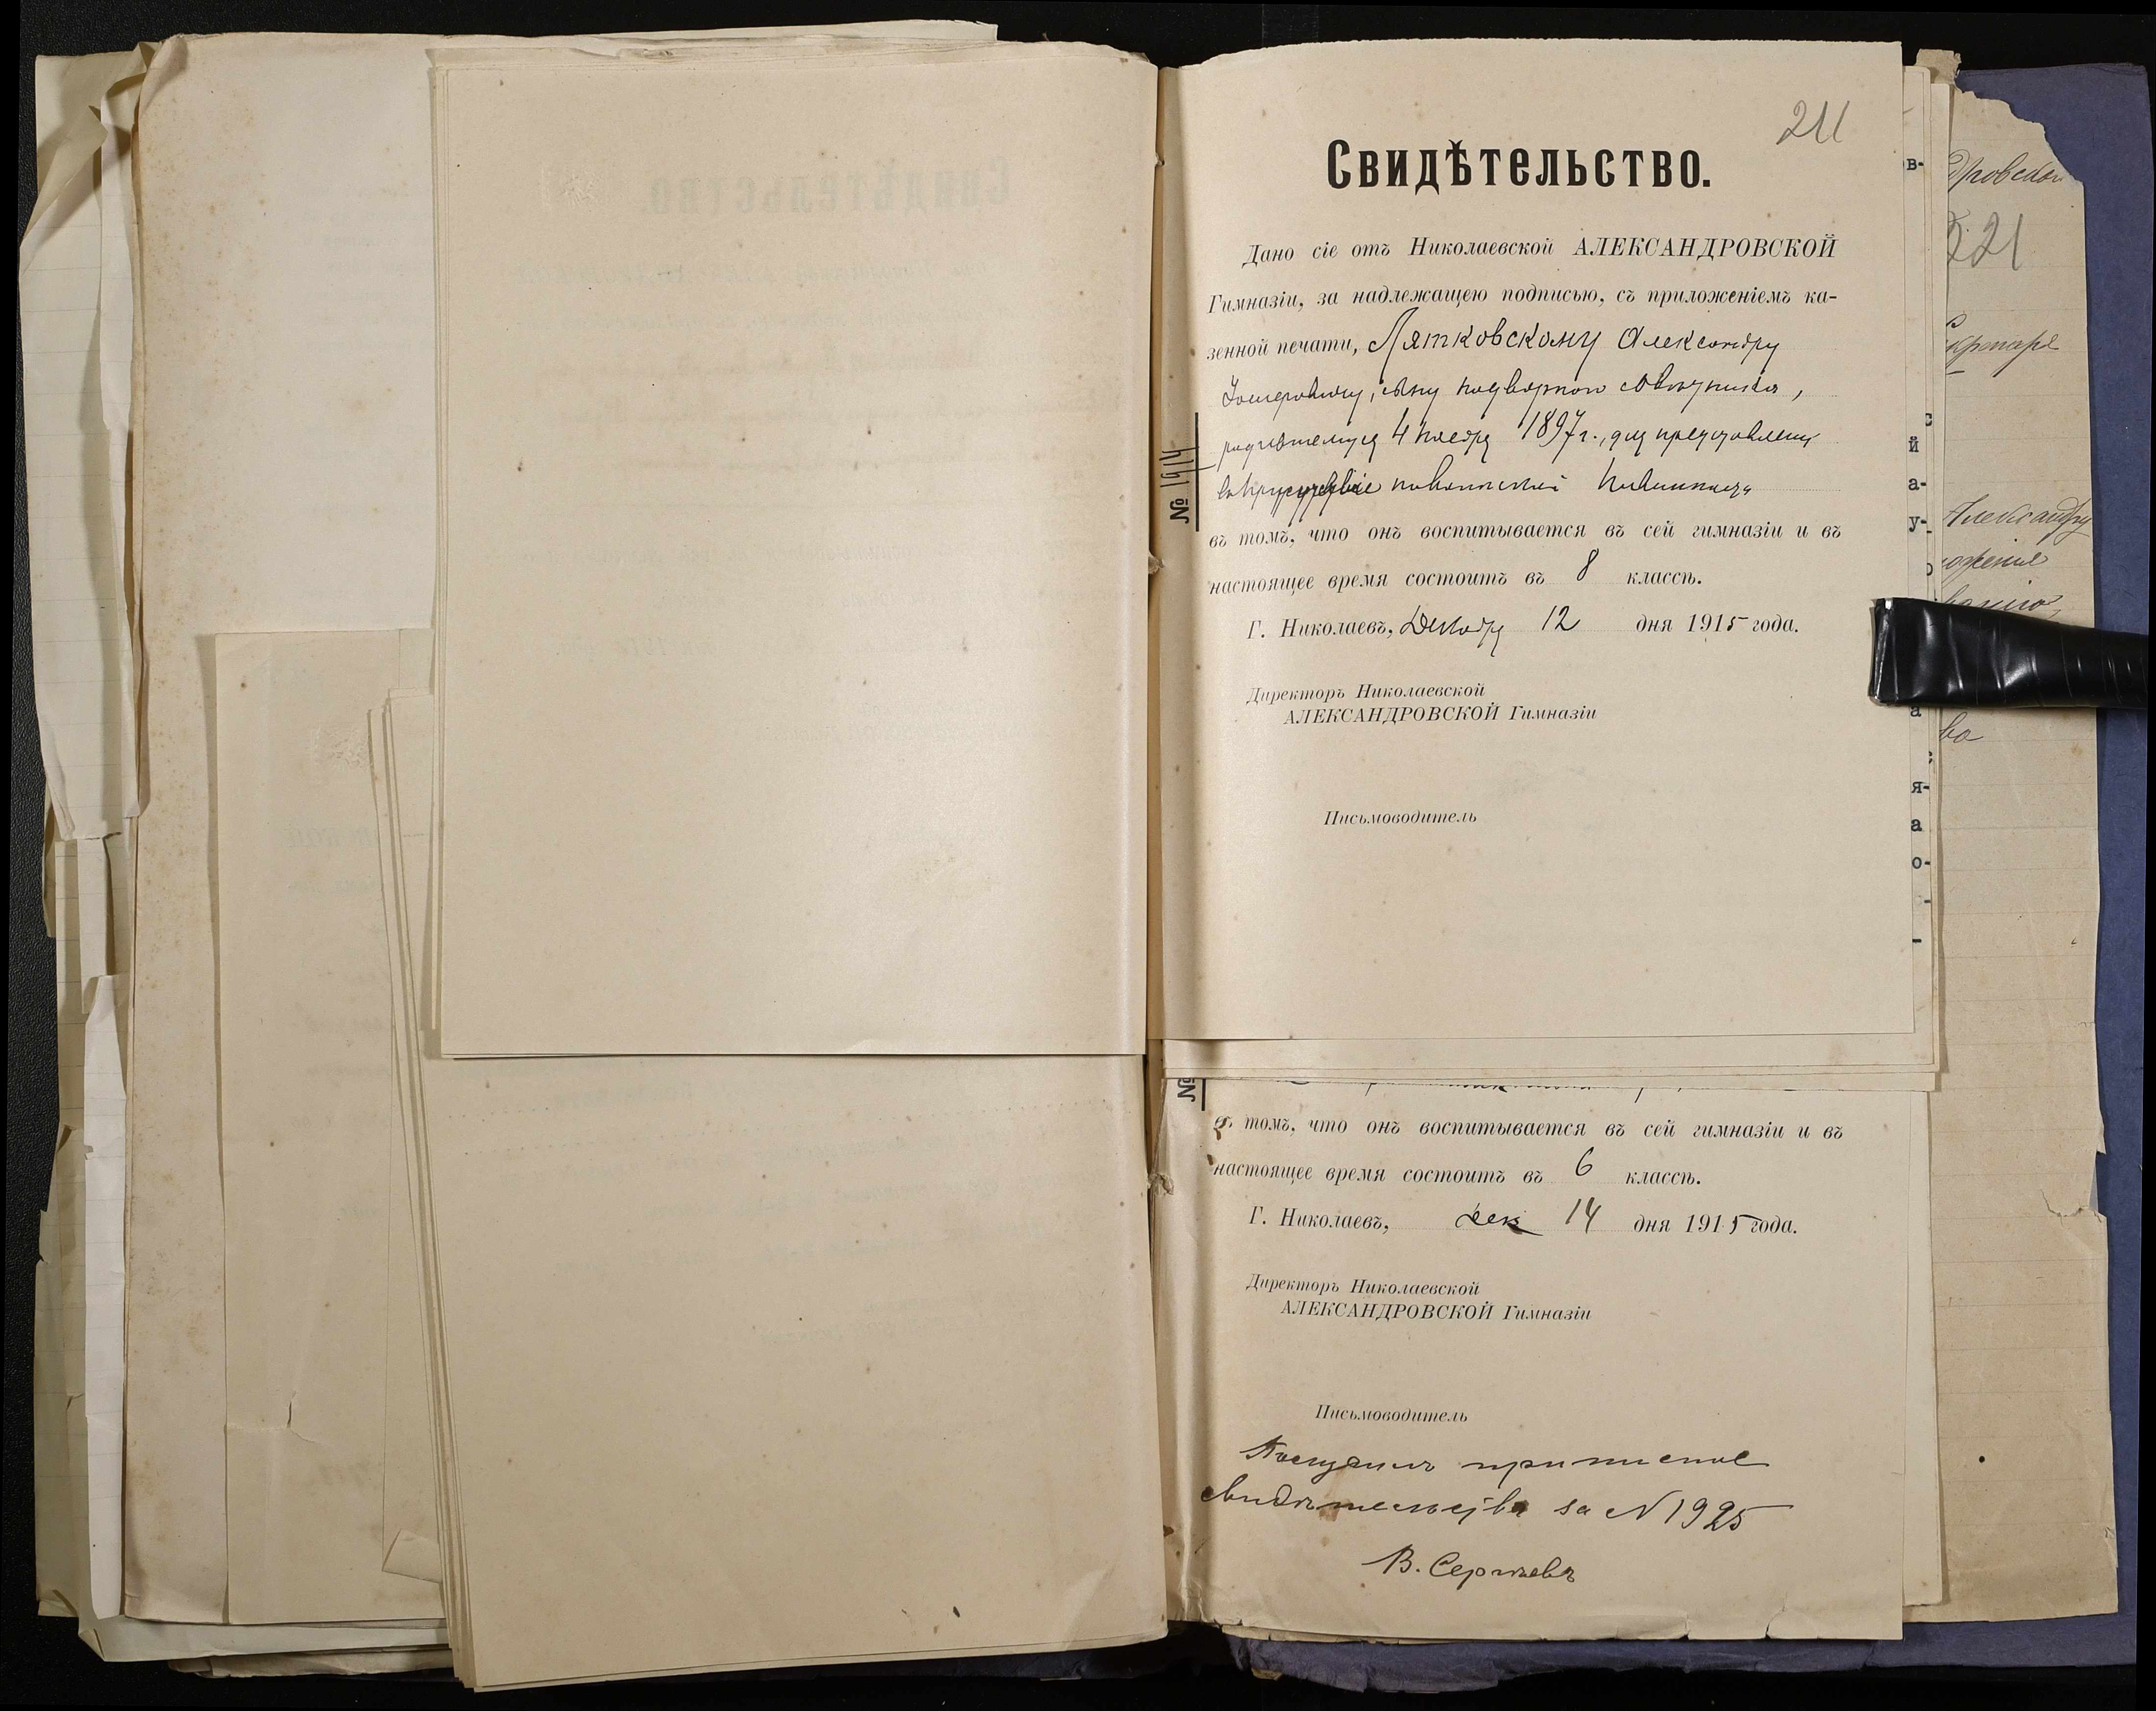 211
Свидѣтельство.
Дано сіе отъ Николаевской АЛЕКСАНДРОВСКОЙ
Гимназіи, за надлежащею подписью, съ приложеніемъ ка-
зенной печати, Лятковскому Александру
сыну надворнаго совѣтника,
родившемуся 4 ноября 1897 г., для представленія
въ присутствіе воинской повинности
№ 1914
въ томъ, что онъ воспитывается въ сей гимназіи и въ
настоящее время состоитъ въ 8 классѣ.
Г. Николаевъ, Декабря 12 дня 1915 года.
Директоръ Николаевской
АЛЕКСАНДРОВСКОЙ Гимназіи
Письмоводитель
№
въ томъ, что онъ воспитывается въ сей гимназіи и въ
настоящее время состоитъ въ 6 классѣ.
Г. Николаевъ, Дек 14 дня 1915 года.
Директоръ Николаевской
АЛЕКСАНДРОВСКОЙ Гимназіи
Письмоводитель
приписное
свидѣтельство за N 1925
В. Сергѣевъ
221
Александру